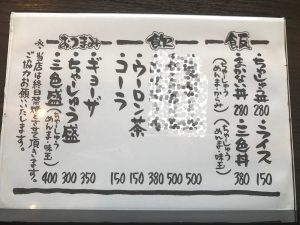 飯
・ちゃしゅ丼 280
・ライス 150
280
(ちゃしゅう
・三色丼 380
(ちゃしゅう
めんま・味玉)
飲
500
500
380
・ウーロン茶 150
・コーラ 150
おつまみ
・ギョーザ 350
・ちゃしゅう盛 300
・三色盛 400
(ちゃしゅう
めんま・味玉)
※当店は終日禁煙とさせて頂きます。
ご協力お願いいたします。